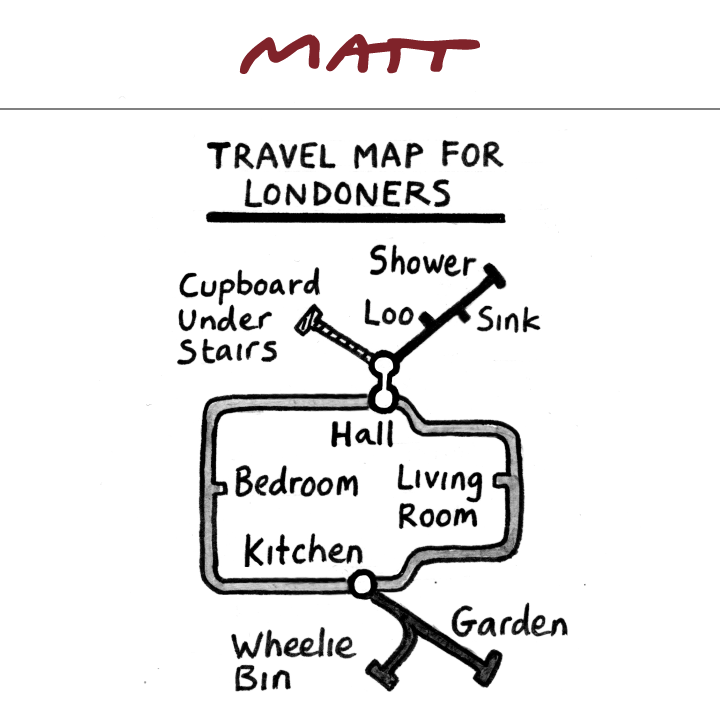 MATT
TRAVEL MAP FOR
LONDONERS
Shower
Cupboard
Under
Stairs
Loo
Sink
Hall
Bedroom
Living
Room
Kitchen
Garden
Wheelie
Bin